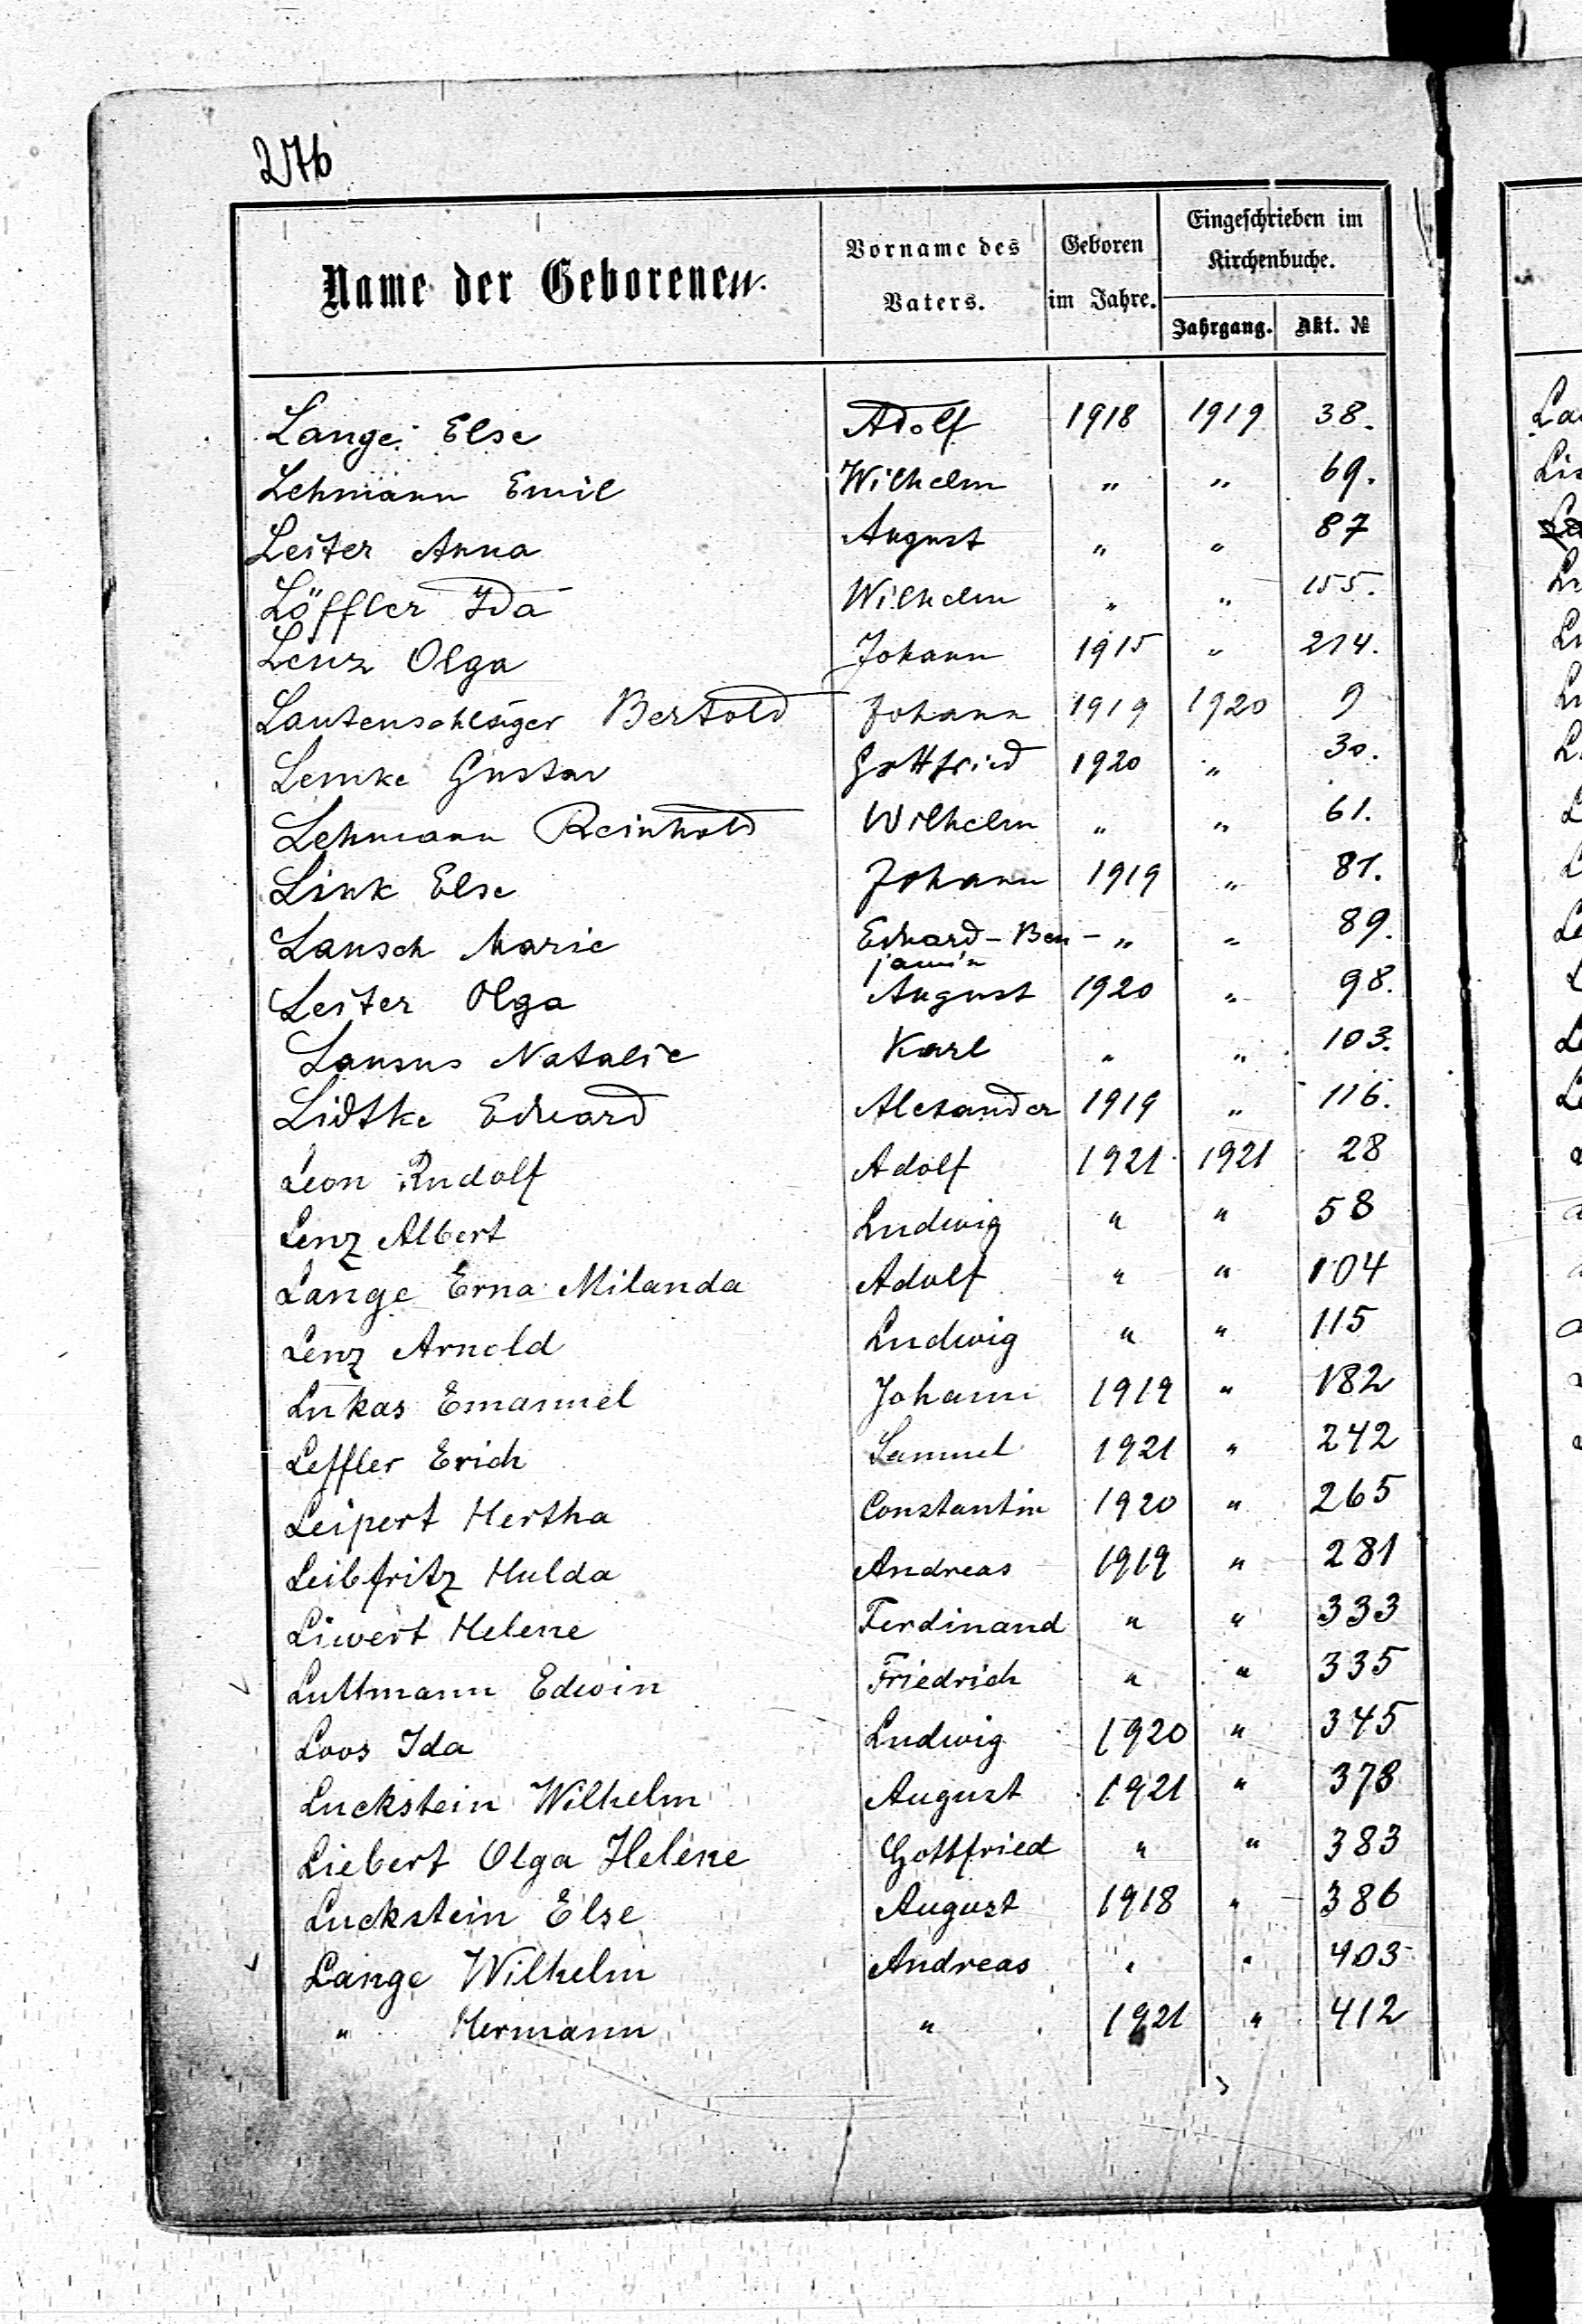 276
Name der Geborenen. Vorname des Vaters. Geboren im Jahre. Eingeschrieben im Kirchenbuche.
Jahrgang. Akt. №
Lange Else Adolf 1918 1919 38.
Lehmann Emil Wilhelm " " 69.
Leiter Anna August " " 87
Löffler Ida Wilhelm " " 155.
Lenz Olga Johann 1915 " 214.
Lautenschläger Bertold Johann 1919 1920 9
Lemke Gustav Gottfried 1920 " 30.
Lehmann Reinhold Wilhelm " " 61.
Link Else Johann 1919 " 81.
Lausch Marie Eduard-Ben- " " 89.
jamin
Leiter Olga August 1920 " 98.
Lausus Natalie Karl " " 103.
Lidtke Eduard Alexander 1919 " 116.
Leon Rudolf Adolf 1921 1921 28
Lenz Albert Ludwig " " 58
Lange Erna Milanda Adolf " " 104
Lenz Arnold Ludwig " " 115
Lukas Emanuel Johann 1919 " 182
Leffler Erich Samuel 1921 " 242
Leipert Hertha Constantin 1920 " 265
Leibfritz Hulda Andreas 1919 " 281
Liwert Helene Ferdinand " " 333
Luttmann Edwin Friedrich " " 335
Loos Ida Ludwig 1920 " 345
Luckstein Wilhelm August 1921 " 378
Liebert Olga Helene Gottfried " " 383
Luckstein Else August 1918 " 386
Lange Wilhelm Andreas " " 403
" Hermann " 1921 " 412